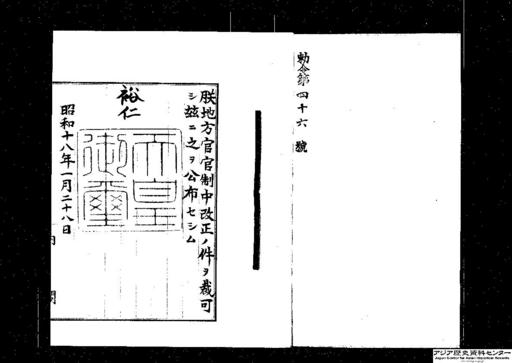 勅令第四十六號
朕地方官官制中改正ノ件ヲ裁可
シ玆ニ之ヲ公布セシム
裕仁
天皇
御璽
昭和十八年一月二十八日
内閣
アジア歴史資料センター
Japan Center for Asian Historical Records